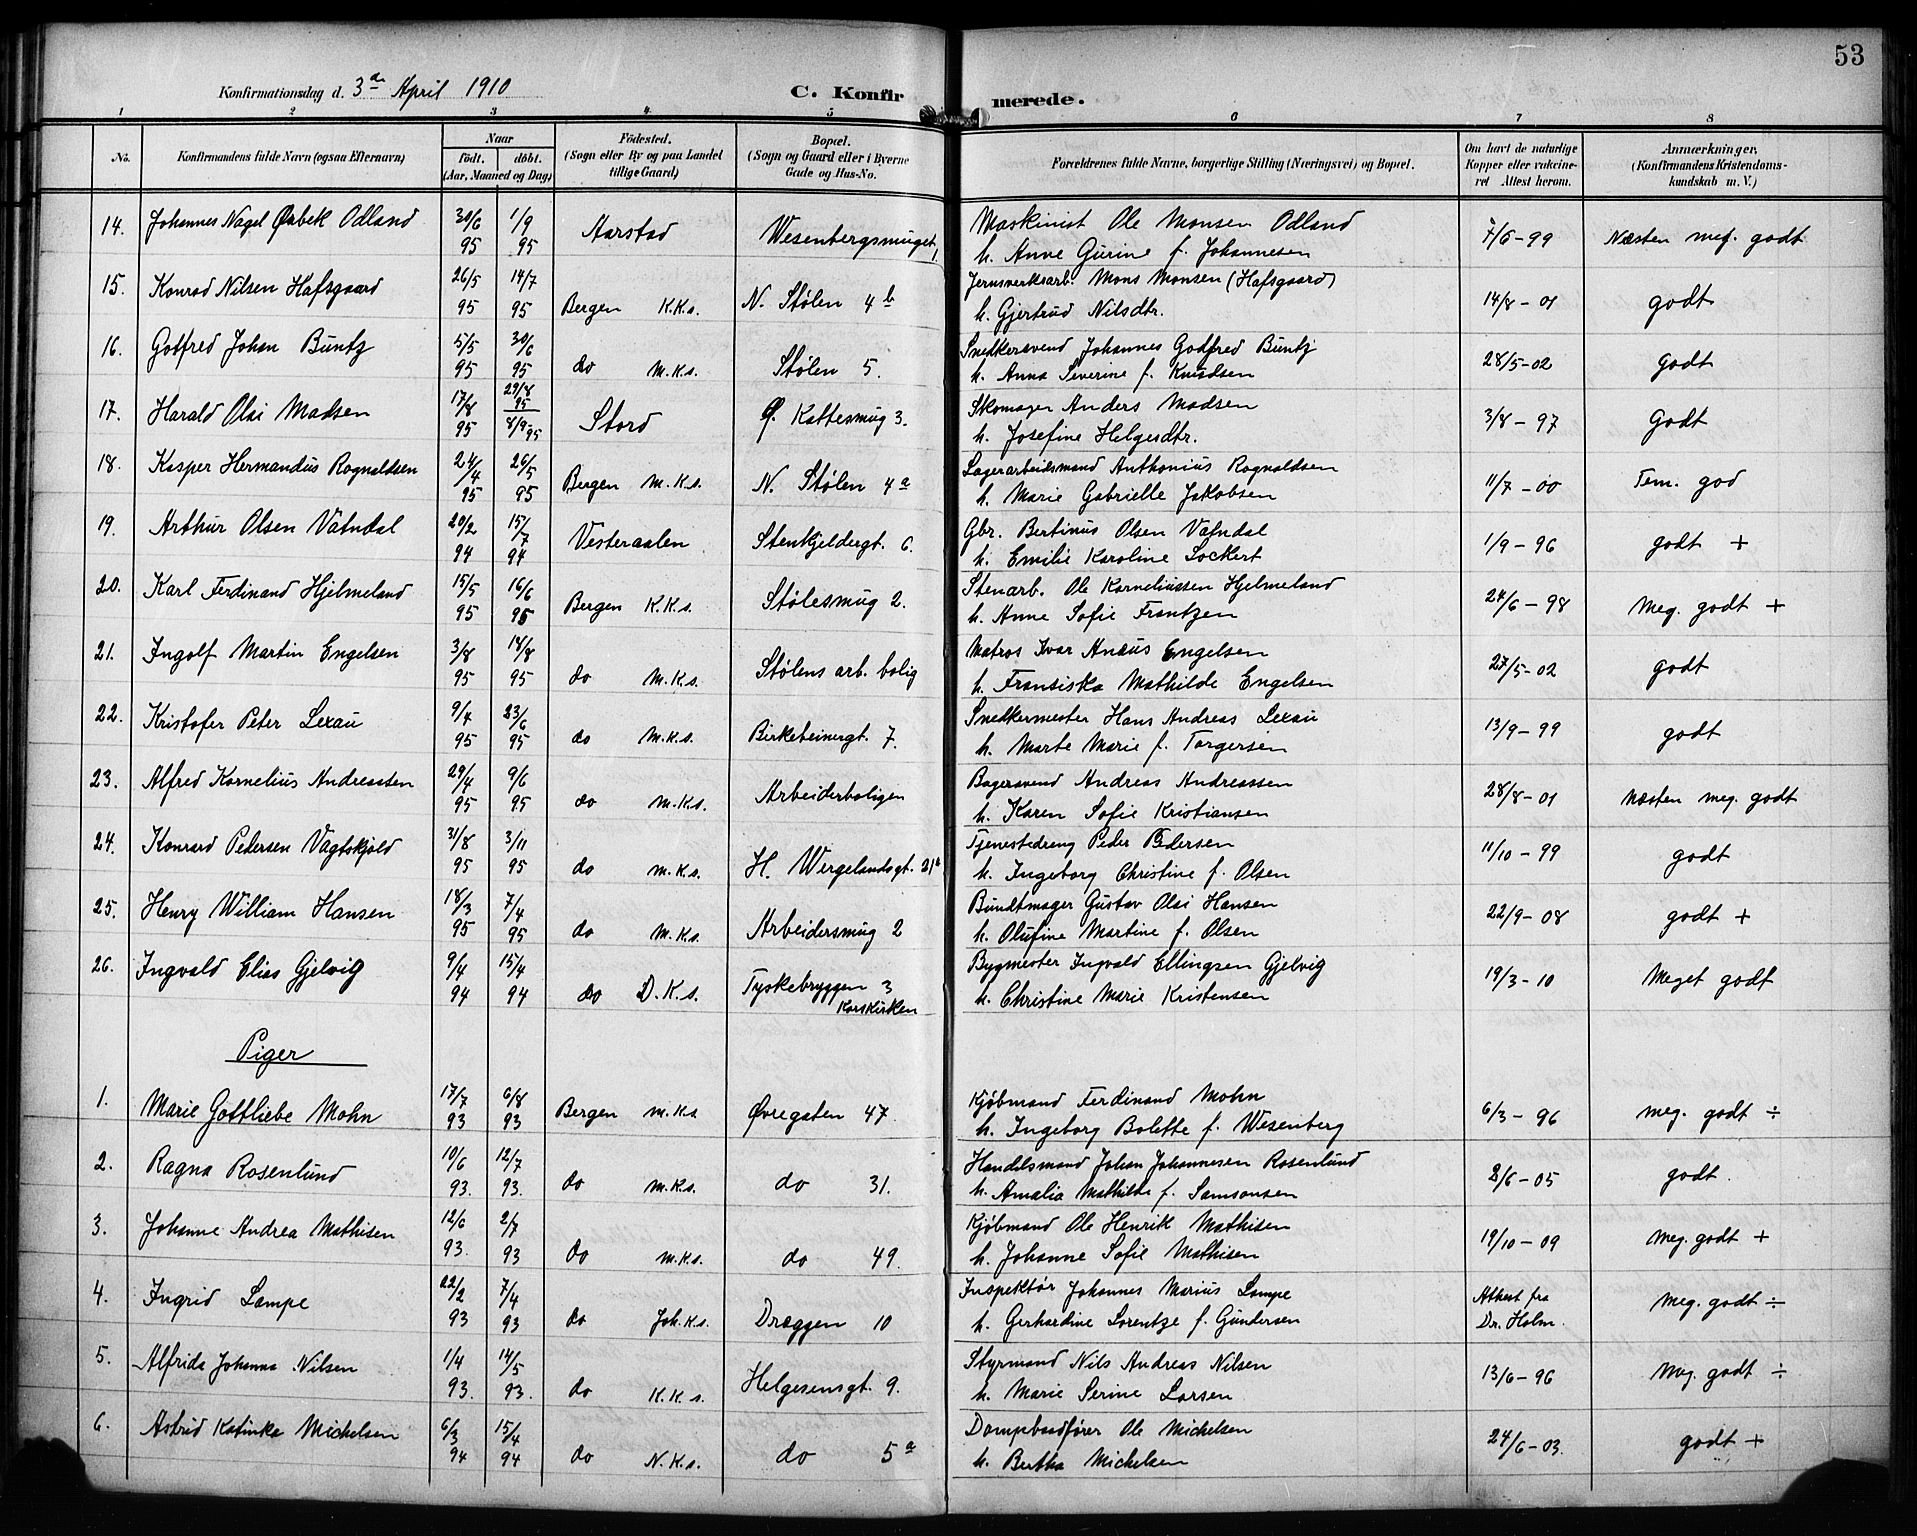 53
Konfirmationsdag d. 3die April 1910 C. Konfirmerede.
1 2 3 4 5 6 7 8
No. Konfirmandens fulde Navn (ogsaa Efternavn) Naar født. døbt. (Aar, Maaned og Dag) Fødested. (Sogn eller By og paa Landet tillige Gaard) Bopæl. (Sogn og Gaard eller i Byerne Gade og Hus-No. Forældrenes fulde Navne, borgerlige Stilling (Næringsvei) og Bopæl. Om havt de naturlige Kopper eller vakcineret Attest herom. Anmærkninger, (Konfirmandens Kristendomskundskab m. V.)
14. Johannes Nagel Ørbek Odland 30/6 1/9 Maskinist Ole Monsen Odland
95 95 Aarstad Wesenbergsmuget, h. Anne Gurine f. Johannesen 7/6-99 Næsten meg. godt
15. Konrad Nilsen Hafsgaard 26/5 14/7 Jernverksarb. Mons Monsen (Hafsgaard)
95 95 Bergen K.K.s. N. Stølen 4b h. Gjertrud Nilsdtr. 14/8-01 godt
16. Gotfred Johan Buntz 5/5 30/6 Snedkersvend Johannes Godfred Buntz
95 95 do M.K.s. Stølen 5. h. Anna Severine f. Knudsen 28/5-02 godt
17. Harald Olai Madsen 17/8 29/8 95 Skomager Anders Madsen
95 8/9 95 Stord Ø. Kattesmug 3. h. Josefine Helgesdtr. 3/8-97 Godt
18. Kasper Hermandus Rognaldsen 24/4 26/5 Lagerarbeidsmand Anthonius Rognaldsen
95 95 Bergen M.K.s. N. Stølen 4a h. Marie Gabrielle Jakobsen 11/7-00 Tem. god
19. Arthur Olsen Vatndal 20/2 15/7 Gbr. Bertinus Olsen Vatndal
94 94 Vesteraalen Stenkjeldergt. 6. h. Emilie Karoline Lockert 1/9-96 godt +
20. Karl Ferdinand Hjelmeland 15/5 16/6 Stenarb. Ole Korneliussen Hjelmeland
95 95 Bergen K.K.s. Stølesmug 2. h. Anne Sofie Frantzen 24/6-98 Meg. godt +
21. Ingolf Martin Engelsen 3/8 14/8 Matros Ivar Anæus Engelsen
95 95 do M.K.s. Stølens arb. bolig h. Fransiska Mathilde Engelsen 27/5-02 godt
22. Kristofer Peter Lexau 9/4 23/6 Snedkermester Hans Andreas Lexau
95 95 do M.K.s. Birkebeinergt. 7. h. Marte Marie f. Torgersen 13/9-99 godt
23. Alfred Kornelius Andreassen 29/4 9/6 Bagersvend Andreas Andreassen
95 95 do M.K.s. Arbeiderboligen h. Karen Sofie Kristiansen 28/8-01 Næsten meg. godt
24. Konrard Pedersen Vagtskjold 31/8 3/11 Tjenestedreng Peder Pedersen
95 95 do M.K.s. H. Wergelandsgt. 21a h. Ingeborg Christine f. Olsen 11/10-99 godt
25. Henry William Hansen 18/3 7/4 Bundtmager Gustav Olai Hansen
95 95 do M.K.s. Arbeidersmug 2 h. Olufine Martine f. Olsen 22/9-08 godt +
26. Ingvald Elias Gjelvig 9/4 15/4 Bygmester Ingvald Ellingsen Gjelvig
94 94 do D.K.s. Tyskebryggen 3 Korskirken h. Christine Marie Kristensen 19/3-10 Meget godt
Piger
1. Marie Gottliebe Mohn 17/7 6/8 Kjøbmand Ferdinand Mohn
93 93 Bergen M.K.s Øvregaten 47. h. Ingeborg Bolette f. Wesenberg 6/3-96 meg. godt ÷
2. Ragna Rosenlund 10/6 12/7 Handelsmand Johan Johannesen Rosenlund
93. 93. do M.K.s. do 31. h. Amalia Mathilde f. Samsonsen 2/6-05 godt.
3. Johanne Andrea Mathisen 12/6 2/7 Kjøbmand Ole Henrik Mathisen
93. 93 do M.K.s. do 49. h. Johanne Sofie Mathisen 19/10-09 Meg. godt +
4. Ingrid Lampe 22/2 7/4 Inspektør Johannes Marius Lampe
93 93 do Joh.K.s. Dræggen 10 h. Gerhardine Lorentze f. Gundersen Attest fra Dr. Holm. Meg. godt ÷
5. Alfrida Johanna Nilsen 1/4 14/5 Styrmand Nils Andreas Nilsen
93. 93. do K.K.s. Helgesensgt. 9. h. Marie Serine Larsen 13/6-96 Meg. godt ÷
6. Astrid Katinka Michelsen 6/3 15/4 Dampbaadfører Ole Michelsen
94 94 do N.K.s. do 5a h. Bertha Michelsen 24/6-03. godt +